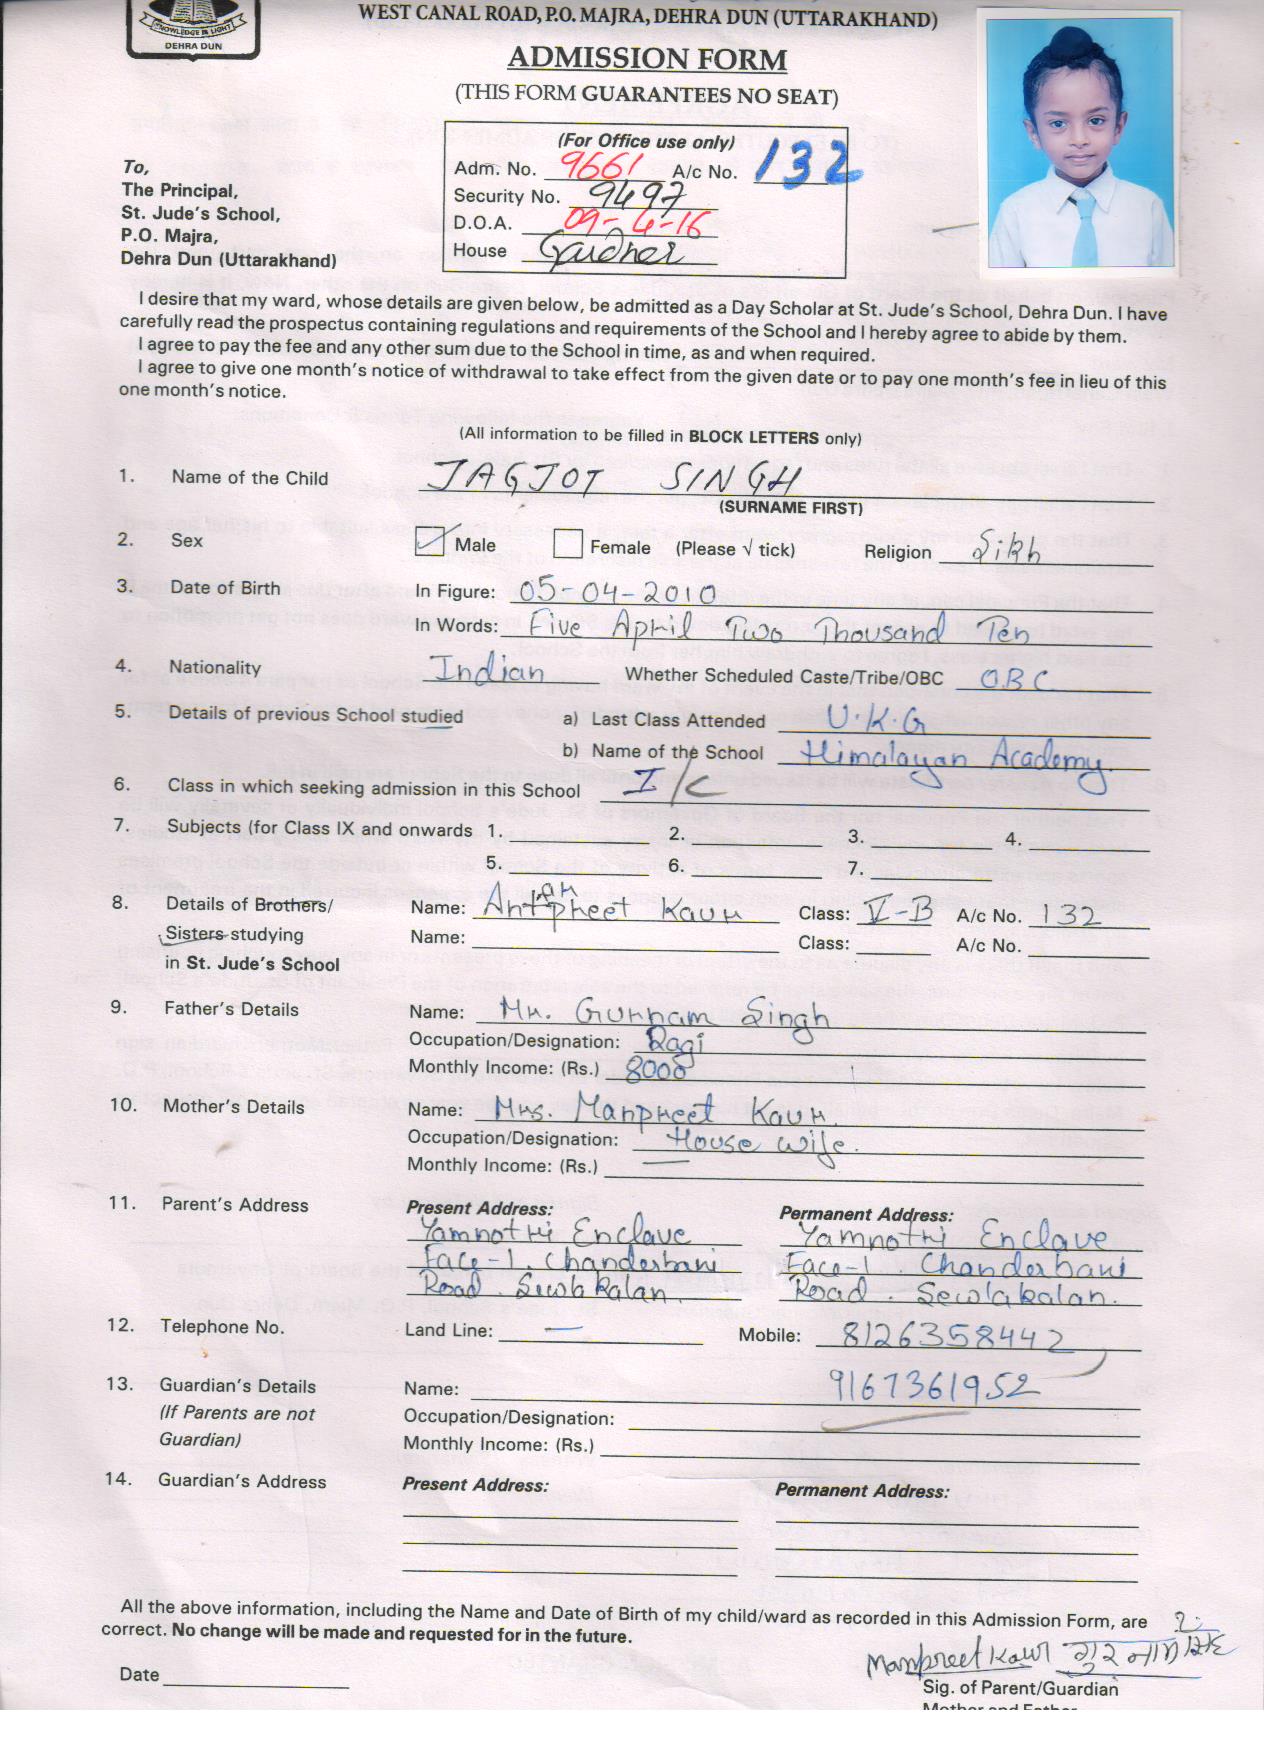 KNOWLEDGE IS LIGHT
DEHRA DUN
WEST CANAL ROAD, P.O. MAJRA, DEHRA DUN (UTTARAKHAND)
ADMISSION FORM
(THIS FORM GUARANTEES NO SEAT)
(For Office use only)
Adm. No. 9661 A/c No. 132
Security No. 9497
D.O.A. 09-4-16
House Gardner
To,
The Principal,
St. Jude's School,
P.O. Majra,
Dehra Dun (Uttarakhand)
I desire that my ward, whose details are given below, be admitted as a Day Scholar at St. Jude's School, Dehra Dun. I have
carefully read the prospectus containing regulations and requirements of the School and I hereby agree to abide by them.
I agree to pay the fee and any other sum due to the School in time, as and when required.
I agree to give one month's notice of withdrawal to take effect from the given date or to pay one month's fee in lieu of this
one month's notice.
(All information to be filled in BLOCK LETTERS only)
1. Name of the Child JAGJOT SINGH
(SURNAME FIRST)
2. Sex Male Female (Please √ tick) Religion Sikh
3. Date of Birth In Figure: 05-04-2010
In Words: Five April Two Thousand Ten
4. Nationality Indian Whether Scheduled Caste/Tribe/OBC OBC
5. Details of previous School studied a) Last Class Attended U.K.G
b) Name of the School Himalayan Academy
6. Class in which seeking admission in this School I/C
7. Subjects (for Class IX and onwards 1. 2. 3. 4.
5. 6. 7.
8. Details of Brothers/ Name: Kaur Class: V-B A/c No. 132
Sisters studying Name: Class: A/c No.
in St. Jude's School
9. Father's Details Name: Mr. Gurnam Singh
Occupation/Designation: Ragi
Monthly Income: (Rs.) 8000
10. Mother's Details Name: Mrs. Manpreet Kaur.
Occupation/Designation: House wife.
Monthly Income: (Rs.) —
11. Parent's Address Present Address: Permanent Address:
Yamnotri Enclave Yamnotri Enclave
Face-1. Chanderbani Face-1 Chanderbani
Road. Sewlakalan. Road. Sewlakalan.
12. Telephone No. Land Line: — Mobile: 8126358442
9167361952
13. Guardian's Details Name:
(If Parents are not Occupation/Designation:
Guardian) Monthly Income: (Rs.)
14. Guardian's Address Present Address: Permanent Address:
All the above information, including the Name and Date of Birth of my child/ward as recorded in this Admission Form, are
correct. No change will be made and requested for in the future.
Manpreet Kaur गुरनाम सिंह
Date
Sig. of Parent/Guardian
Mother and Father